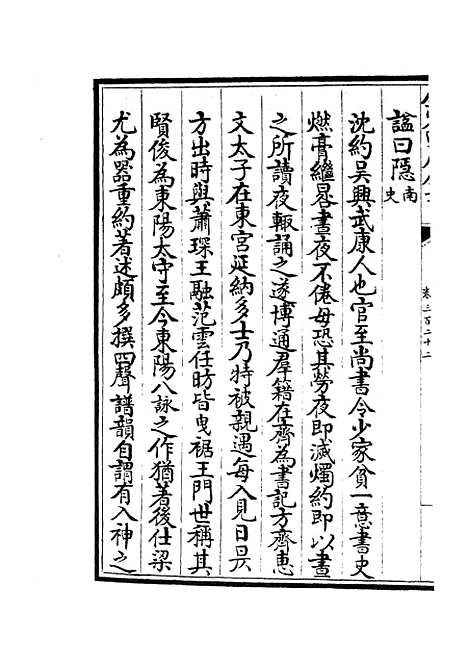 諡曰隱南史
沈約吳興武康人也官至尚書令少家貧一意書史
燃膏繼晷晝夜不倦母恐其勞夜即滅燭約即以晝
之所讀夜輒誦之遂博通羣籍在齊為書記方齊惠
文太子在東宮延納多士乃特被親遇每入見日昃
方出時與蕭琛王融范雲任昉皆曳裾王門世稱其
賢俊為東陽太守至今東陽八詠之作猶著後仕梁
尤為器重約著述頗多撰四聲譜韻自謂有入神之
卷三百二十二